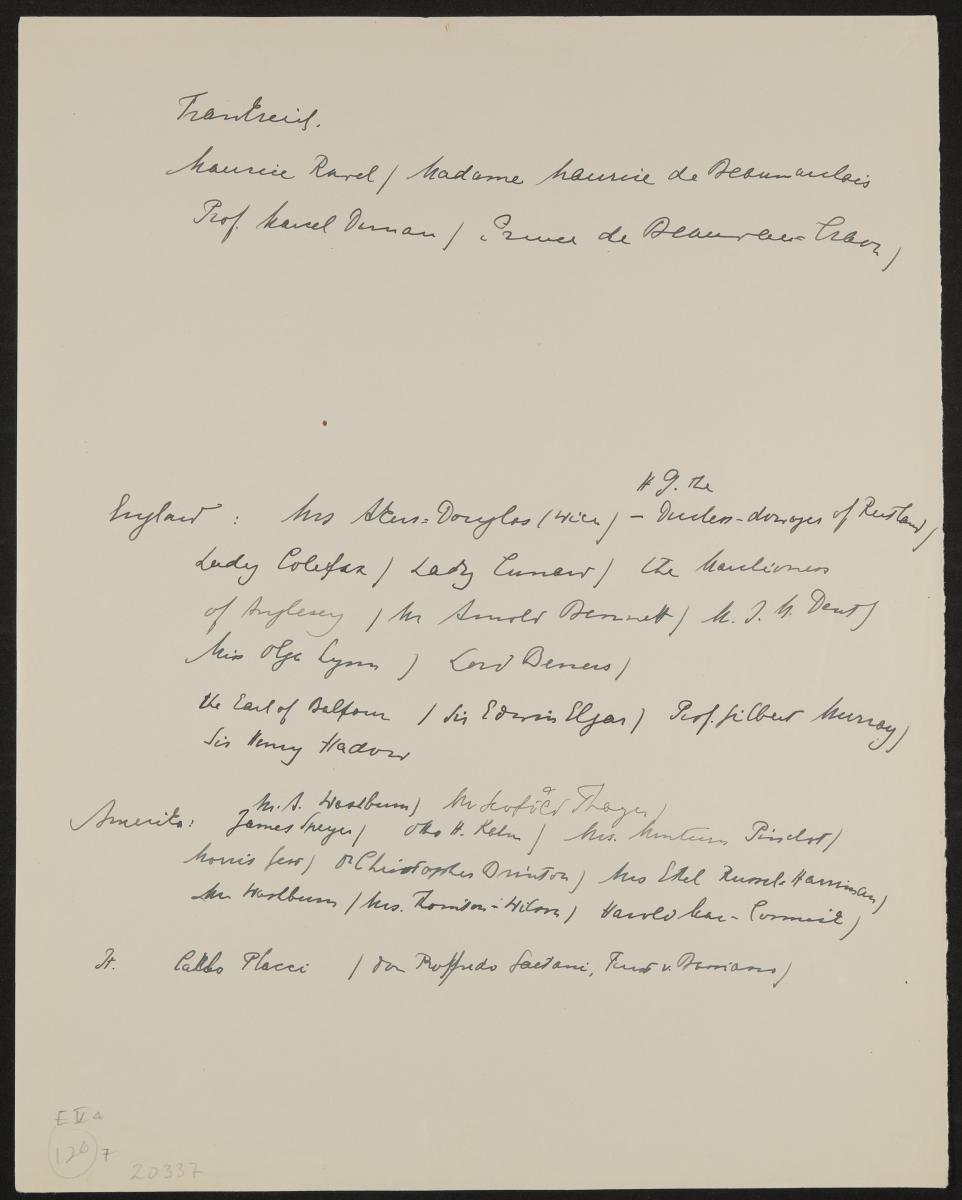 Frankreich.
Maurice Ravel / Madame Maurice de Beaumarchais
Prof. Marcel / Prince de Beauvau-Craon /
H. G. the
England : Mrs Akers-Douglas (Wien) – Duchess-dowager of Rutland /
Lady Colefax / Lady Cunard / the Marchioness
of Anglesey / Mr Arnold Bennett / M. J. M. Dent /
Miss Olga Lynn / Lord Berners /
the Earl of Balfour / Sir Edwin Elgar / Prof. Gilbert Murray /
Sir Henry Hadow
Mr. A. Washburn / Mr Scofield Thayer /
Amerika: James Speyer / Otto H. Kahn / Mrs. Pinchot /
Morris Gest / Dr Christopher Brinton / Mrs Ethel Russel-Harriman /
Mr Washburn / Mrs. Thornton-Wilson / Harold Mac-Cormick /
It. Carlo Placci / Don Roffredo Caetani, Fürst v. Bassiano /
E V a
120 7
20337